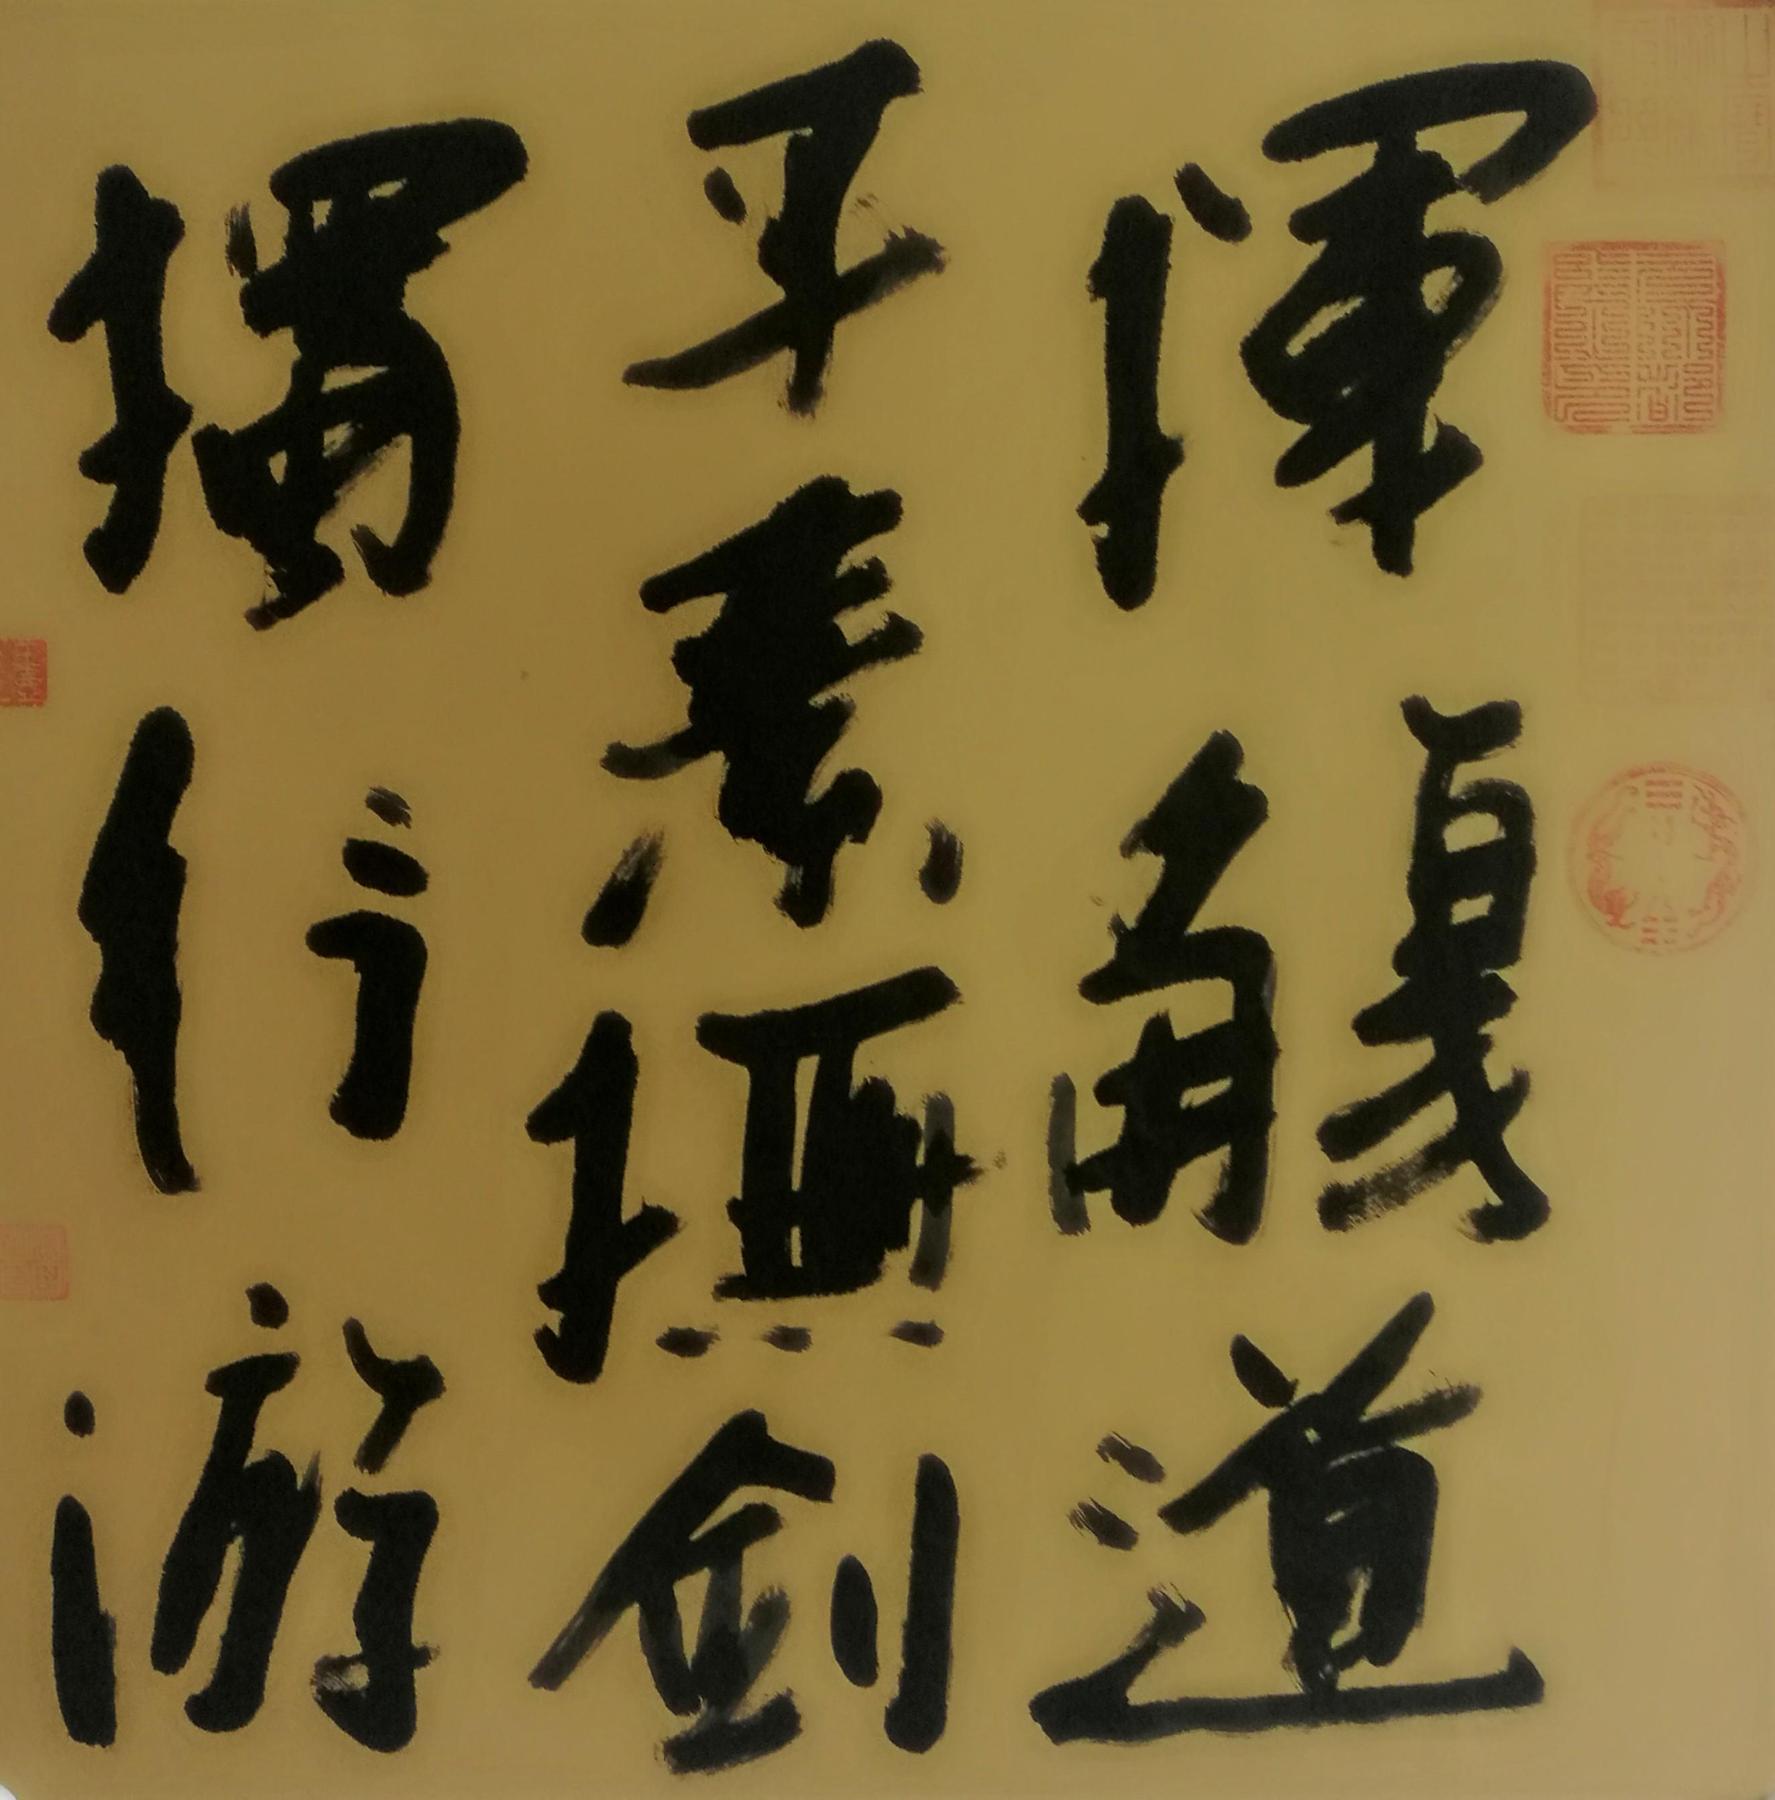 揮觴道
平素撫劍
獨行游